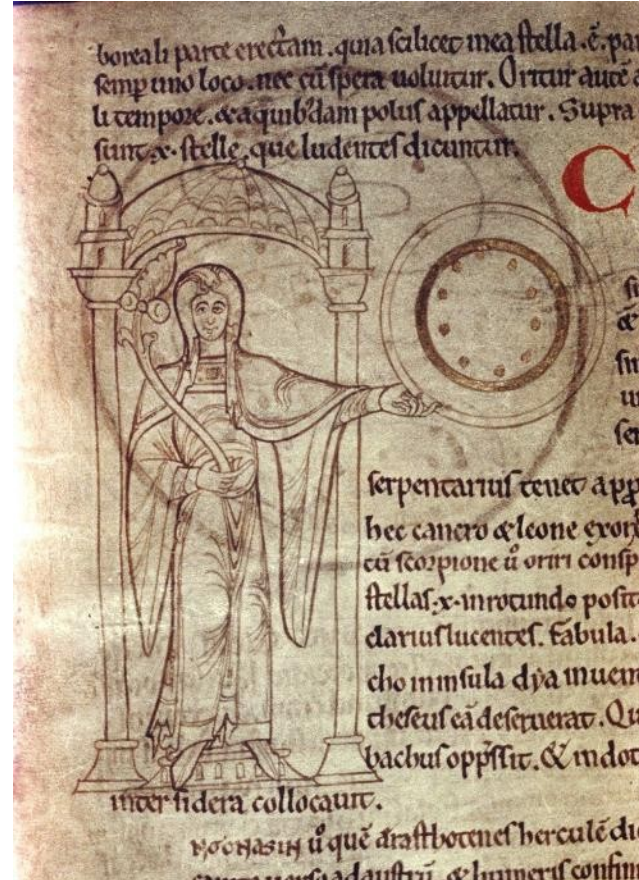 boreali parte erectam. quia scilicet mea stella. ē. par
semp uno loco. nec cū spera uoluitur. Oritur autē
li tempore. & a quibꝰdam polus appellatur. Supra
sunt .x. stelle, que ludentes dicuntur.
C
&
serpentarius tenet app
hec cancro & leone exori
cū scorpione ů oriri consp
stellas .x. in rotundo posit
darius lucentes. Fabula.
cho in insula dya inuen
theseus eā deseruerat. Qu
bachus opp̄ssit. & in dot
inter sidera collocauit.
ů quē drastbotenes herculē di
& humeris confin